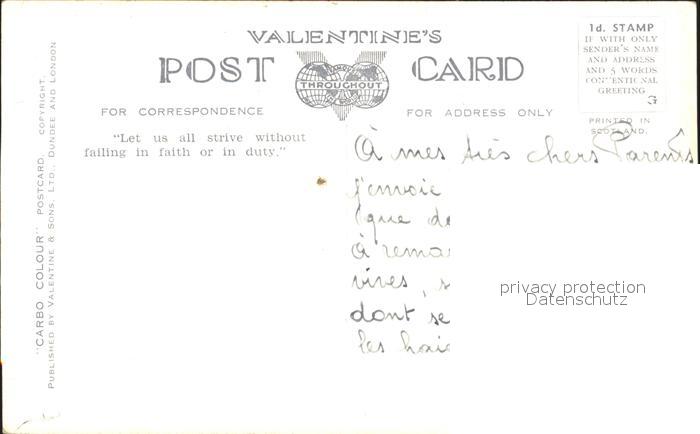 VALENTINE'S
POST CARD
THROUGHOUT
FOR CORRESPONDENCE
FOR ADDRESS ONLY
1d. STAMP
IF WITH ONLY
SENDER'S NAME
AND ADDRESS
AND 5 WORDS
CONVENTIONAL
GREETING
PRINTED IN
SCOTLAND.
"Let us all strive without
failing in faith or in duty."
À mes très chers Parents
j'envoie
que de
À rema
vives, s
dont se
les haie
privacy protection
Datenschutz
"CARBO COLOUR" POSTCARD, COPYRIGHT.
PUBLISHED BY VALENTINE & SONS, LTD., DUNDEE AND LONDON